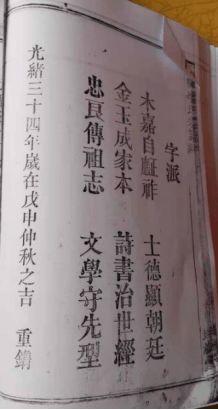 字派
木嘉自&#40860;祚 士德顯朝廷
金玉成家本 詩書治世經
忠良傳祖志 文學守先型
光緒三十四年歲在戊申仲秋之吉 重鐫